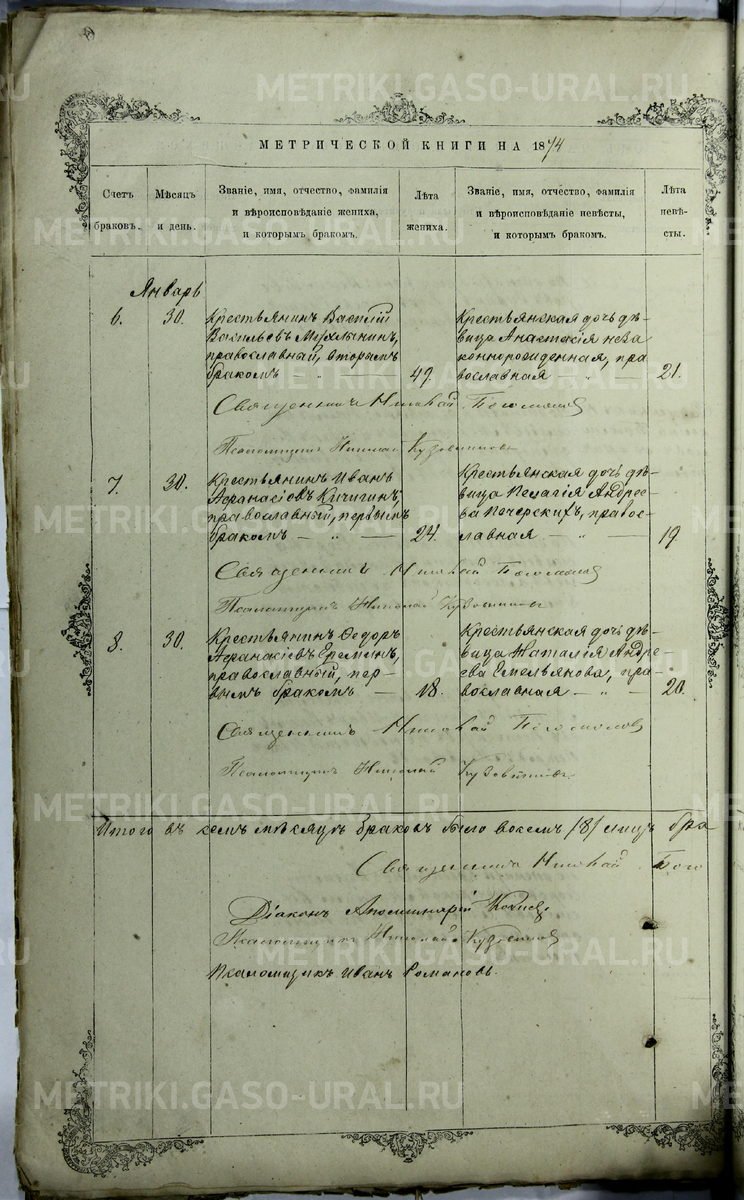 METRIKI.GASO-URAL.RU
МЕТРИЧЕСКОЙ КНИГИ НА 1874
Счетъ браковъ.
Мѣсяцъ и день.
Званіе, имя, отчество, фамилія
и вѣроисповѣданіе жениха,
и которымъ бракомъ.
Лѣта жениха.
Званіе, имя, отчество, фамилія
и вѣроисповѣданіе невѣсты,
и которымъ бракомъ.
Лѣта невѣ-
сты.
Январь
6. 30. Крестьянинъ Василій
Васильевъ
православный, вторымъ
бракомъ — " — 49.
Крестьянская дочь дѣ-
вица Анастасія неза
коннорожденная, пра
вославная " — 21.
Священникъ Николай Богомолов
Псаломщикъ Николай
7. 30. Крестьянинъ Иванъ
Афанасіевъ Кичигинъ,
православный, первымъ
бракомъ — " — 24.
Крестьянская дочь дѣ-
вица Пелагія Андрее-
ва Печерскихъ, правос-
лавная — " — 19
Священникъ Николай Богомолов
Псаломщикъ Николай
8. 30. Крестьянинъ Ѳедоръ
Афанасіевъ Ереминъ,
православный, пер-
вымъ бракомъ — 18.
Крестьянская дочь дѣ-
вица Наталія Андре
ева Емельянова, пра-
вославная — " — 20.
Священникъ Николай Богомолов
Псаломщикъ Николай
Итого въ семъ мѣсяцѣ браковъ было восемь /8/ лицъ бра
Священникъ Николай Бого
Діаконъ Аполлинарій
Псаломщикъ Николай
Псаломщикъ Иванъ Романовъ.